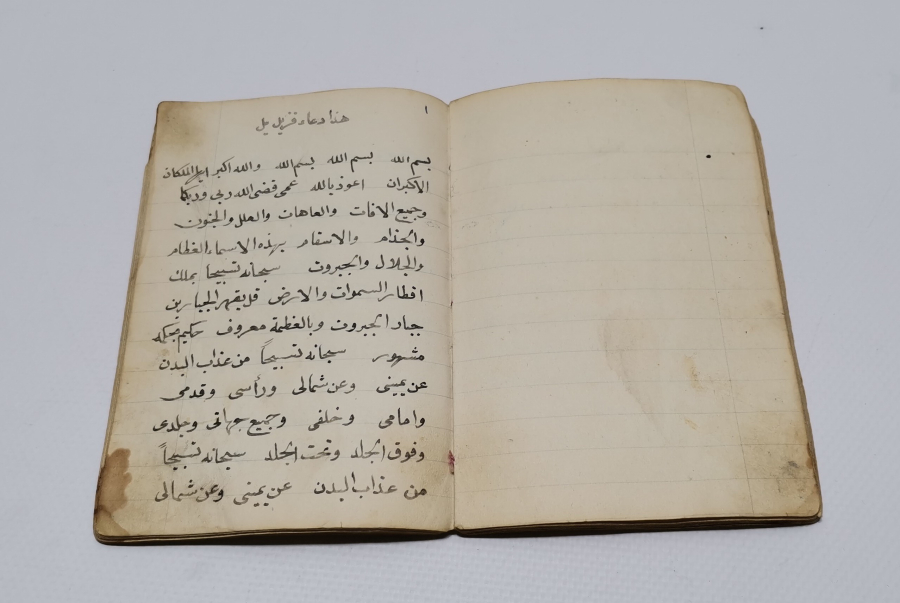 ١
هذا دعاء قزيل يل
بسم الله بسم الله بسم الله والله اكبر ايها الملكان
الاكبران اعوذ بالله عمى قضى الله ربي وربكما
وجميع الافات والعاهات والعلل والجنون
والجذام والاسقام بهذه الاسماء العظام
والجلال والجبروت سبحانه تسبيحا بملك
اقطار السموات والارض قل يقهر الجبارين
جبار الجبروت وبالعظمة معروف حكيم بحكمه
مشهور سبحانه تسبيحاً من عذاب البدن
عن يمينى وعن شمالى ورأسى وقدمى
وامامى وخلفى وجميع جهاتى وجلدى
وفوق الجلد وتحت الجلد سبحانه تسبيحاً
من عذاب البدن عن يمينى وعن شمالى